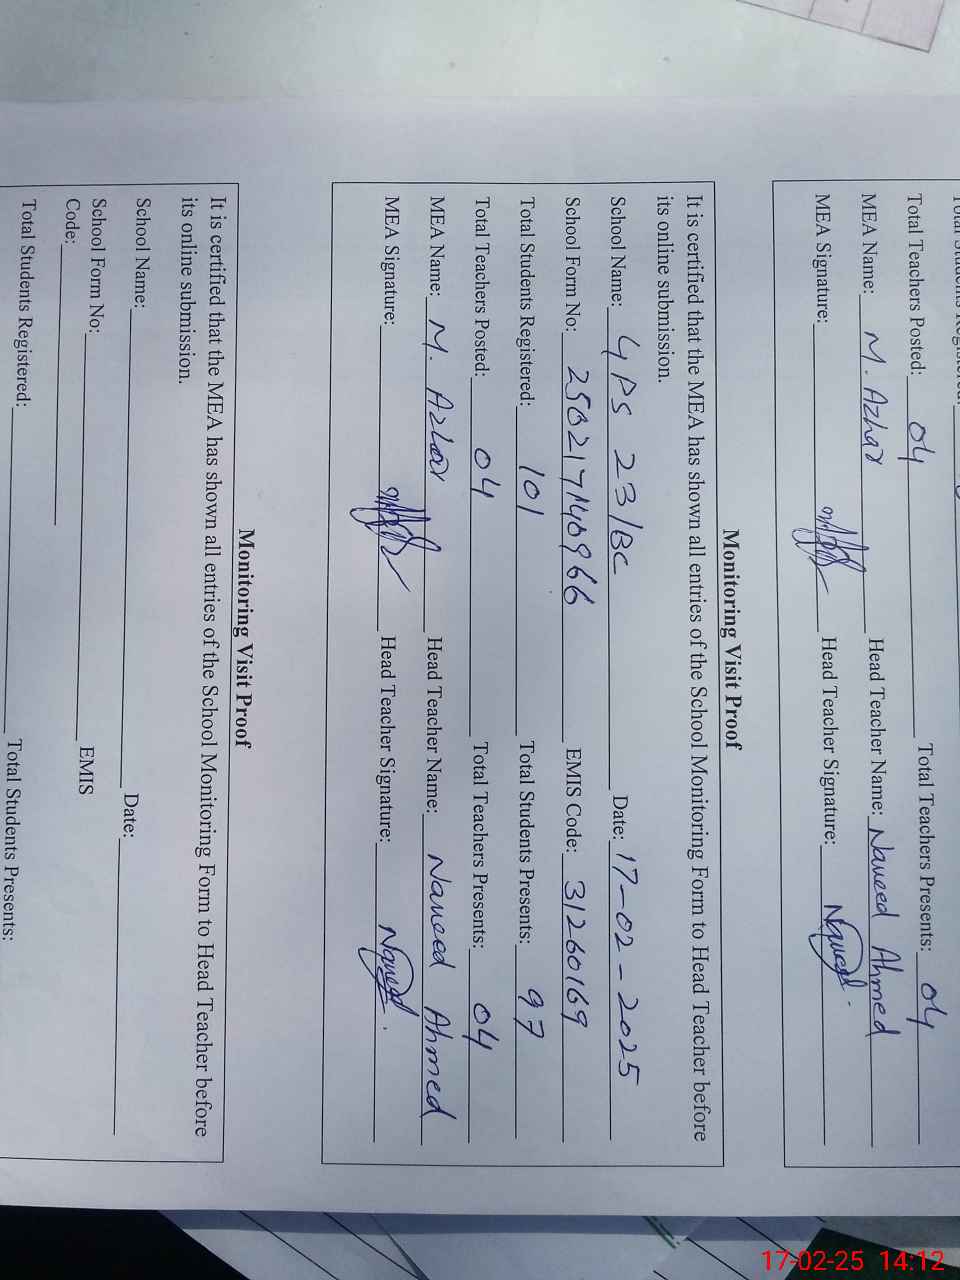 Total Teachers Posted: 04 Total Teachers Presents: 04
MEA Name: M. Azhar Head Teacher Name: Naveed Ahmed
MEA Signature: Head Teacher Signature: Naveed
Monitoring Visit Proof
It is certified that the MEA has shown all entries of the School Monitoring Form to Head Teacher before
its online submission.
School Name: GPS 23/BC Date: 17-02-2025
School Form No: EMIS Code: 31260169
Total Students Registered: 101 Total Students Presents: 97
Total Teachers Posted: 04 Total Teachers Presents: 04
MEA Name: M. Azhar Head Teacher Name: Naveed Ahmed
MEA Signature: Head Teacher Signature: Naveed
Monitoring Visit Proof
It is certified that the MEA has shown all entries of the School Monitoring Form to Head Teacher before
its online submission.
School Name: Date:
School Form No: EMIS
Code:
Total Students Registered: Total Students Presents:
17-02-25 14:12